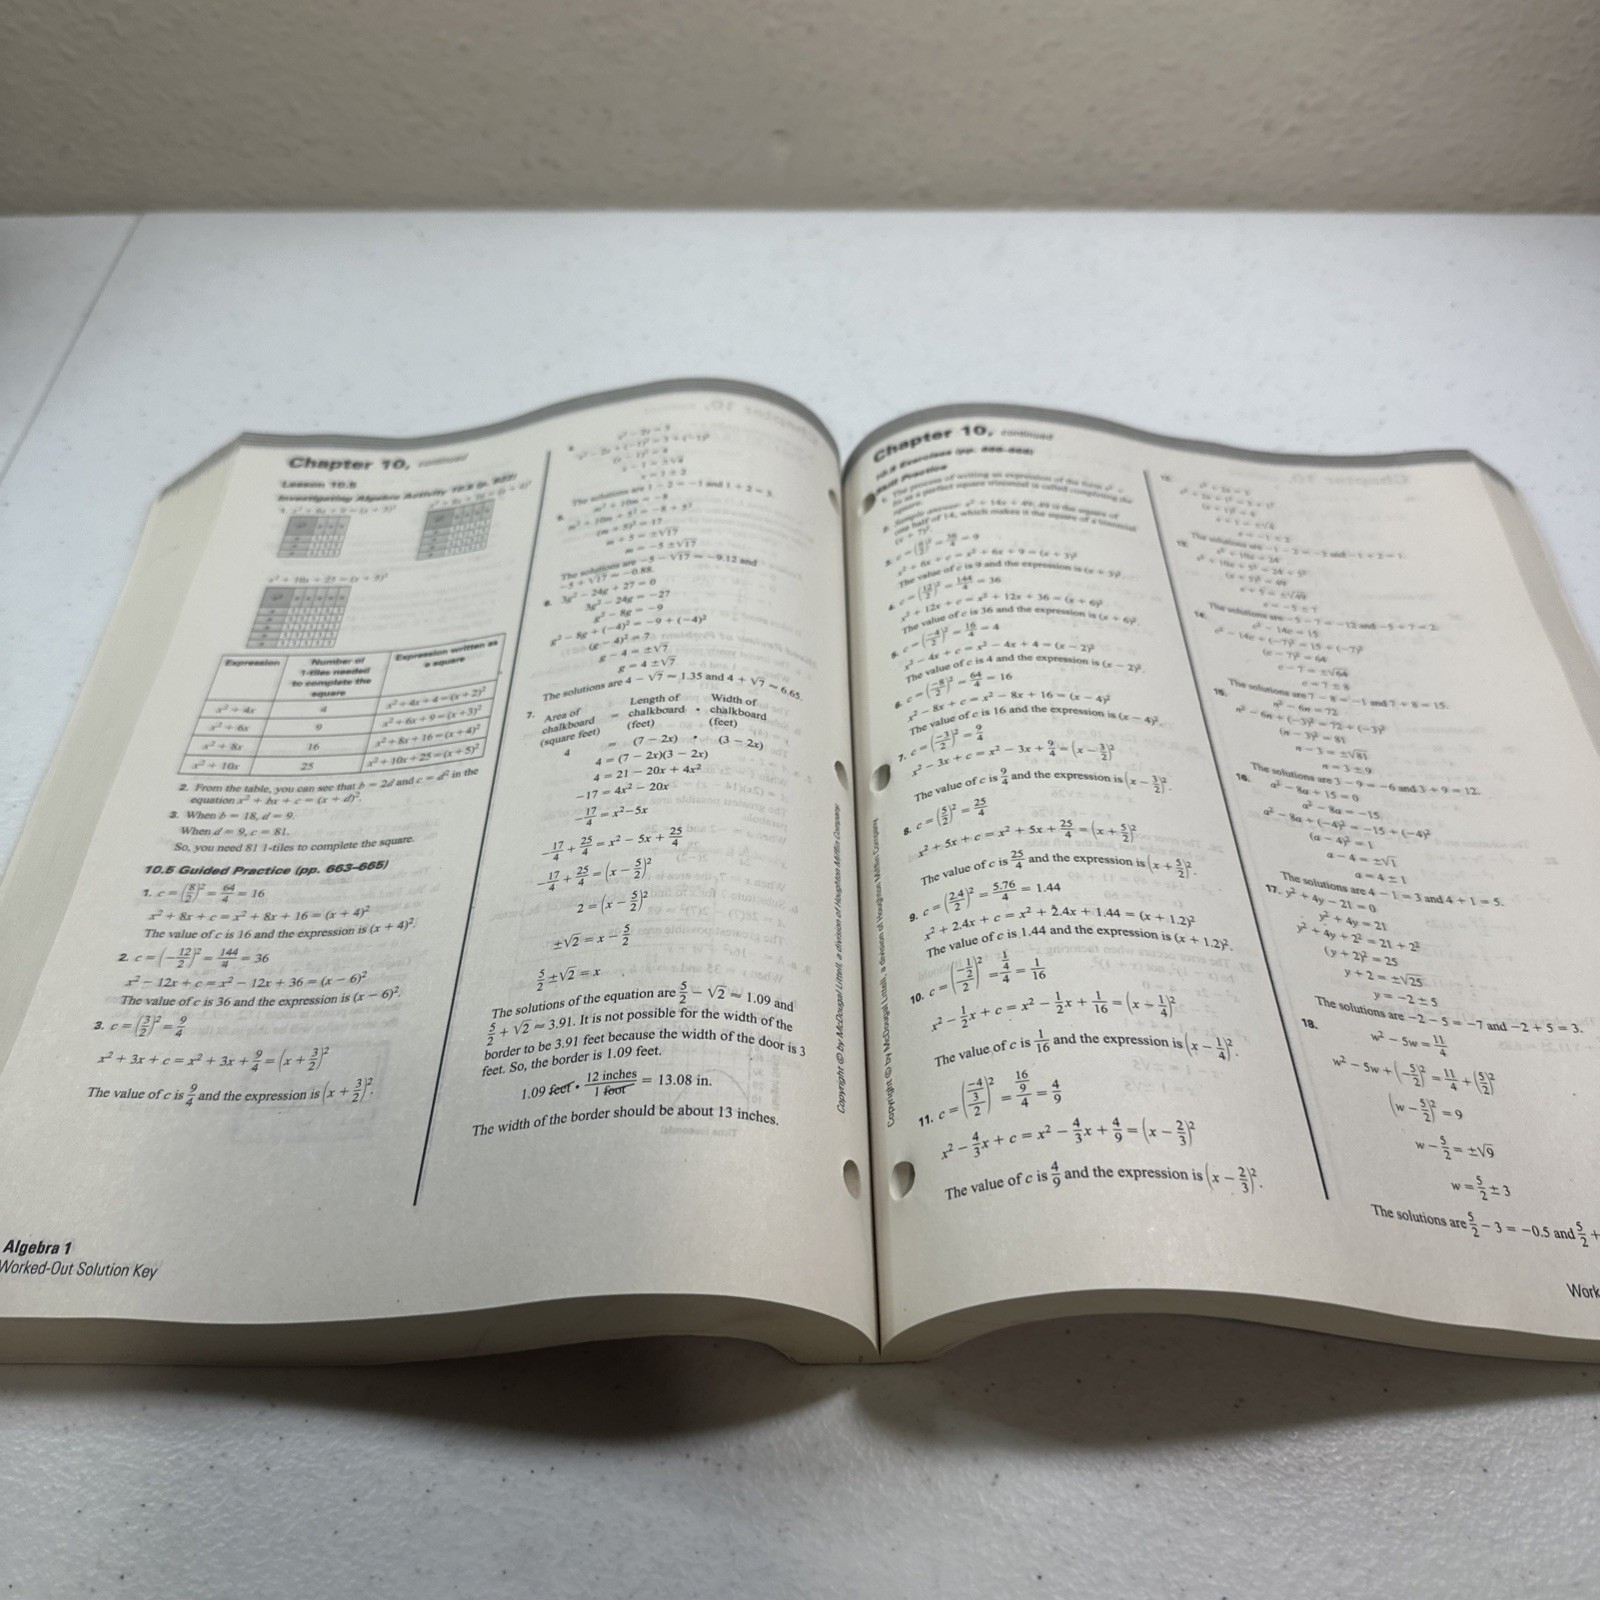 Chapter 10, continued
Lesson 10.5
Investigating Algebra Activity 10.5
Expression
Number of 1-tiles needed to complete the square
Expression written as a square
x² + 4x 4 x² + 4x + 4 = (x + 2)²
x² + 6x 9 x² + 6x + 9 = (x + 3)²
x² + 8x 16 x² + 8x + 16 = (x + 4)²
x² + 10x 25 x² + 10x + 25 = (x + 5)²
2. From the table, you can see that b = 2d and c = d² in the
equation x² + bx + c = (x + d)².
3. When b = 18, d = 9.
When d = 9, c = 81.
So, you need 81 1-tiles to complete the square.
10.5 Guided Practice (pp. 663–665)
1. c = (8/2)² = 64/4 = 16
x² + 8x + c = x² + 8x + 16 = (x + 4)²
The value of c is 16 and the expression is (x + 4)².
2. c = (−12/2)² = 144/4 = 36
x² − 12x + c = x² − 12x + 36 = (x − 6)²
The value of c is 36 and the expression is (x − 6)².
3. c = (3/2)² = 9/4
x² + 3x + c = x² + 3x + 9/4 = (x + 3/2)²
The value of c is 9/4 and the expression is (x + 3/2)².
Algebra 1
Worked-Out Solution Key
x² − 2x = 3
x − 1 = ±√4
x = 1 ± 2
The solutions are 1 − 2 = −1 and 1 + 2 = 3.
m² + 10m = −8
m² + 10m + 5² = −8 + 5²
(m + 5)² = 17
m + 5 = ±√17
m = −5 ±√17
The solutions are −5 − √17 ≈ −9.12 and
−5 + √17 ≈ −0.88.
6. 3g² − 24g + 27 = 0
3g² − 24g = −27
g² − 8g = −9
g² − 8g + (−4)² = −9 + (−4)²
(g − 4)² = 7
g − 4 = ±√7
g = 4 ±√7
The solutions are 4 − √7 ≈ 1.35 and 4 + √7 ≈ 6.65.
7. Area of chalkboard (square feet) = Length of chalkboard (feet) · Width of chalkboard (feet)
4 = (7 − 2x) · (3 − 2x)
4 = (7 − 2x)(3 − 2x)
4 = 21 − 20x + 4x²
−17 = 4x² − 20x
−17/4 = x² − 5x
−17/4 + 25/4 = x² − 5x + 25/4
−17/4 + 25/4 = (x − 5/2)²
2 = (x − 5/2)²
±√2 = x − 5/2
5/2 ±√2 = x
The solutions of the equation are 5/2 − √2 ≈ 1.09 and
5/2 + √2 ≈ 3.91. It is not possible for the width of the
border to be 3.91 feet because the width of the door is 3
feet. So, the border is 1.09 feet.
1.09 feet · 12 inches/1 foot = 13.08 in.
The width of the border should be about 13 inches.
Copyright © by McDougal Littell, a division of Houghton Mifflin Company
Copyright © by McDougal Littell, a division of Houghton Mifflin Company
Chapter 10, continued
10.5 Exercises
Skill Practice
1. The process of writing an expression of the form
as a perfect square trinomial is called completing the
square.
2. Sample answer: x² + 14x + 49; 49 is the square of
one half of 14, which makes it the square of a binomial
(x + 7)².
3. c = (6/2)² = 36/4 = 9
x² + 6x + c = x² + 6x + 9 = (x + 3)²
The value of c is 9 and the expression is (x + 3)².
4. c = (12/2)² = 144/4 = 36
x² + 12x + c = x² + 12x + 36 = (x + 6)²
The value of c is 36 and the expression is (x + 6)².
5. c = (−4/2)² = 16/4 = 4
x² − 4x + c = x² − 4x + 4 = (x − 2)²
The value of c is 4 and the expression is (x − 2)².
6. c = (−8/2)² = 64/4 = 16
x² − 8x + c = x² − 8x + 16 = (x − 4)²
The value of c is 16 and the expression is (x − 4)².
7. c = (−3/2)² = 9/4
x² − 3x + c = x² − 3x + 9/4 = (x − 3/2)²
The value of c is 9/4 and the expression is (x − 3/2)².
8. c = (5/2)² = 25/4
x² + 5x + c = x² + 5x + 25/4 = (x + 5/2)²
The value of c is 25/4 and the expression is (x + 5/2)².
9. c = (2.4/2)² = 5.76/4 = 1.44
x² + 2.4x + c = x² + 2.4x + 1.44 = (x + 1.2)²
The value of c is 1.44 and the expression is (x + 1.2)².
10. c = (−1/2/2)² = 1/4/4 = 1/16
x² − 1/2x + c = x² − 1/2x + 1/16 = (x − 1/4)²
The value of c is 1/16 and the expression is (x − 1/4)².
11. c = (−4/3/2)² = 16/9/4 = 4/9
x² − 4/3x + c = x² − 4/3x + 4/9 = (x − 2/3)²
The value of c is 4/9 and the expression is (x − 2/3)².
12.
The solutions are −1 − 2 = −3 and −1 + 2 = 1.
13.
x + 5 = ±√49
x = −5 ± 7
The solutions are −5 − 7 = −12 and −5 + 7 = 2.
14. c² − 14c = 15
c² − 14c + (−7)² = 15 + (−7)²
(c − 7)² = 64
c − 7 = ±√64
c = 7 ± 8
The solutions are 7 − 8 = −1 and 7 + 8 = 15.
15. n² − 6n = 72
n² − 6n + (−3)² = 72 + (−3)²
(n − 3)² = 81
n − 3 = ±√81
n = 3 ± 9
The solutions are 3 − 9 = −6 and 3 + 9 = 12.
16. a² − 8a + 15 = 0
a² − 8a = −15
a² − 8a + (−4)² = −15 + (−4)²
(a − 4)² = 1
a − 4 = ±√1
a = 4 ± 1
The solutions are 4 − 1 = 3 and 4 + 1 = 5.
17. y² + 4y − 21 = 0
y² + 4y = 21
y² + 4y + 2² = 21 + 2²
(y + 2)² = 25
y + 2 = ±√25
y = −2 ± 5
The solutions are −2 − 5 = −7 and −2 + 5 = 3.
18. w² − 5w = 11/4
w² − 5w + (−5/2)² = 11/4 + (5/2)²
(w − 5/2)² = 9
w − 5/2 = ±√9
w = 5/2 ± 3
The solutions are 5/2 − 3 = −0.5 and 5/2 +
Work